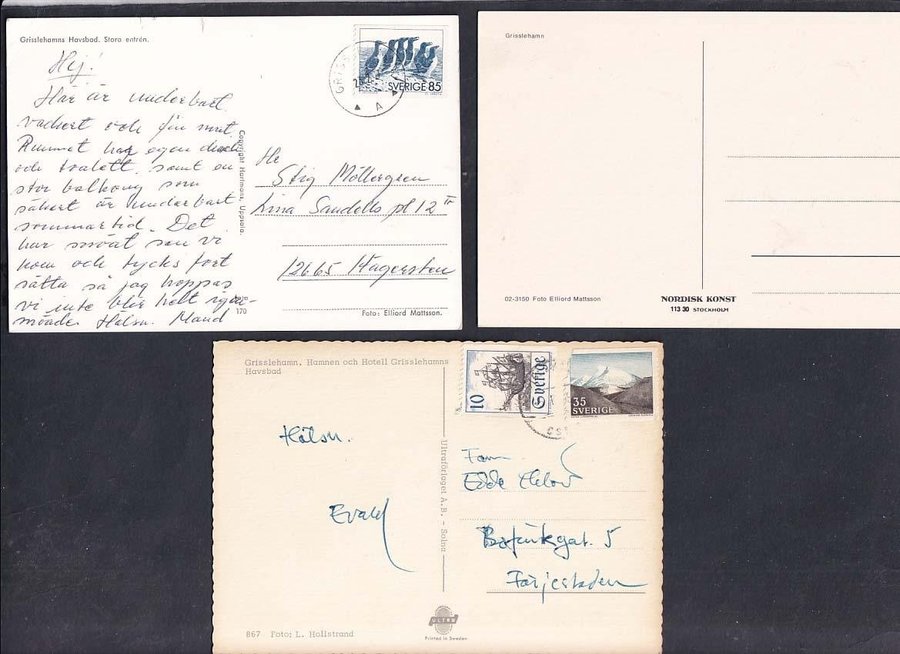 Grisslehamns Havsbad. Stora entrén.
Hej!
Här är underbart
vackert och fin mat.
Rummet har egen dusch
och toalett samt en
stor balkong som
säkert är underbart
sommartid. Det
har snöat sen vi
kom och tycks fort
sätta så jag hoppas
vi inte blir helt igen-
snöade. Hälsn. Maud
Copyright Hartmans, Uppsala.
170
SVERIGE 85
A
Stig Möllergren
Lina Sandells pl 12
12665 Hägersten
Foto: Elliord Mattsson.
Grisslehamn
02-3150 Foto Elliord Mattsson
NORDISK KONST
113 30 STOCKHOLM
Grisslehamn, Hamnen och Hotell Grisslehamns
Havsbad
10 Sverige
35
SVERIGE
Hälsn.
Evald
Ultraförlaget A.B. - Solna
Fam.
5
Färjestaden
867 Foto: L. Hallstrand
ULTRA
Printed in Sweden